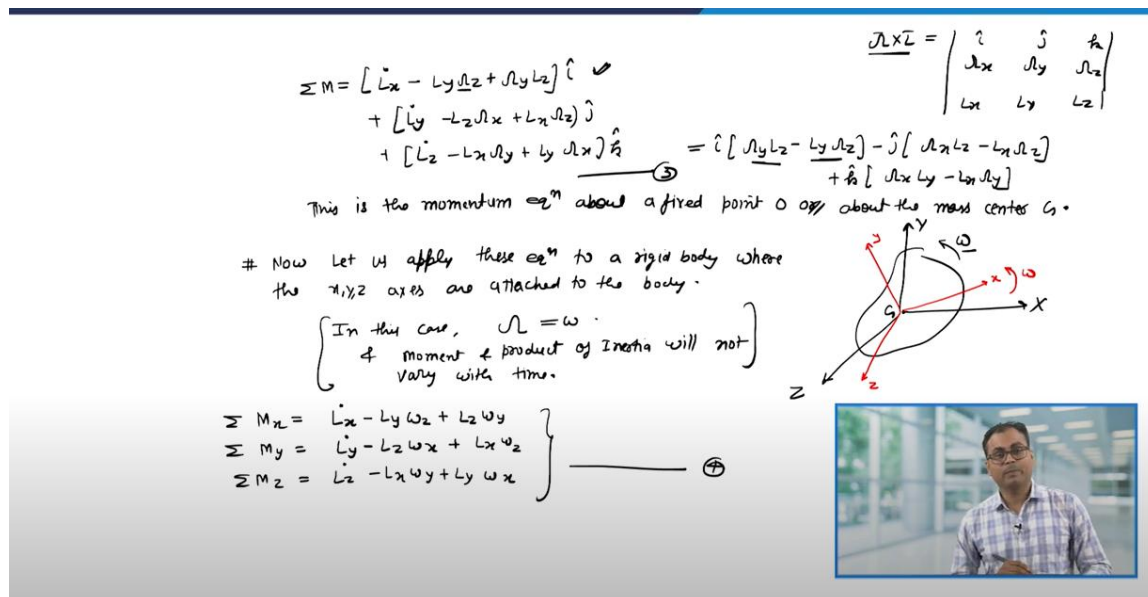 ΣM = [L̇x - LyΩz + ΩyLz] î ✓
+ [L̇y - LzΩx + LxΩz) ĵ
+ [L̇z - LxΩy + LyΩx) k̂
③
Ω×L = | î ĵ k |
| Ωx Ωy Ωz |
| Lx Ly Lz |
= î [ΩyLz - LyΩz] - ĵ [ΩxLz - LxΩz]
+ k̂ [ΩxLy - LxΩy]
This is the momentum eqn about a fixed point O or about the mass center G.
# Now Let us apply these eqn to a rigid body where
the x,y,z axes are attached to the body.
[In this case, Ω = ω.
& moment & product of Inertia will not
vary with time.]
Σ Mx = L̇x - Ly ωz + Lz ωy
Σ My = L̇y - Lz ωx + Lx ωz
Σ Mz = L̇z - Lx ωy + Ly ωx
④
Y
y
ω
x
ω
G
X
Z
z